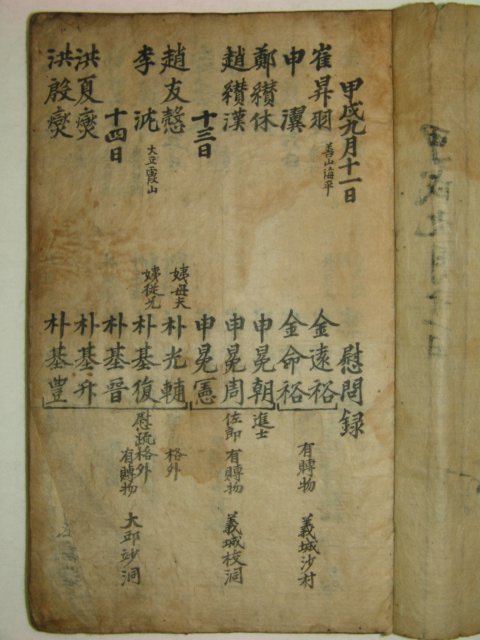 甲戌九月十一日
崔昇羽
善山海平
申瀷
鄭纘休
趙纘漢
十三日
趙友慤
李
大丘霞山
十四日
洪夏燮
洪殷燮
慰問録
金遠裕
金命裕
有賻物 義城沙村
申冕朝 進士
申冕周 佐郎 有賻物 義城校洞
申冕憲
姨母夫 朴光輔 格外
姨從兄 朴基復 慰疏格外
朴基晉 有賻物 大邱 洞
朴基升
朴基豊